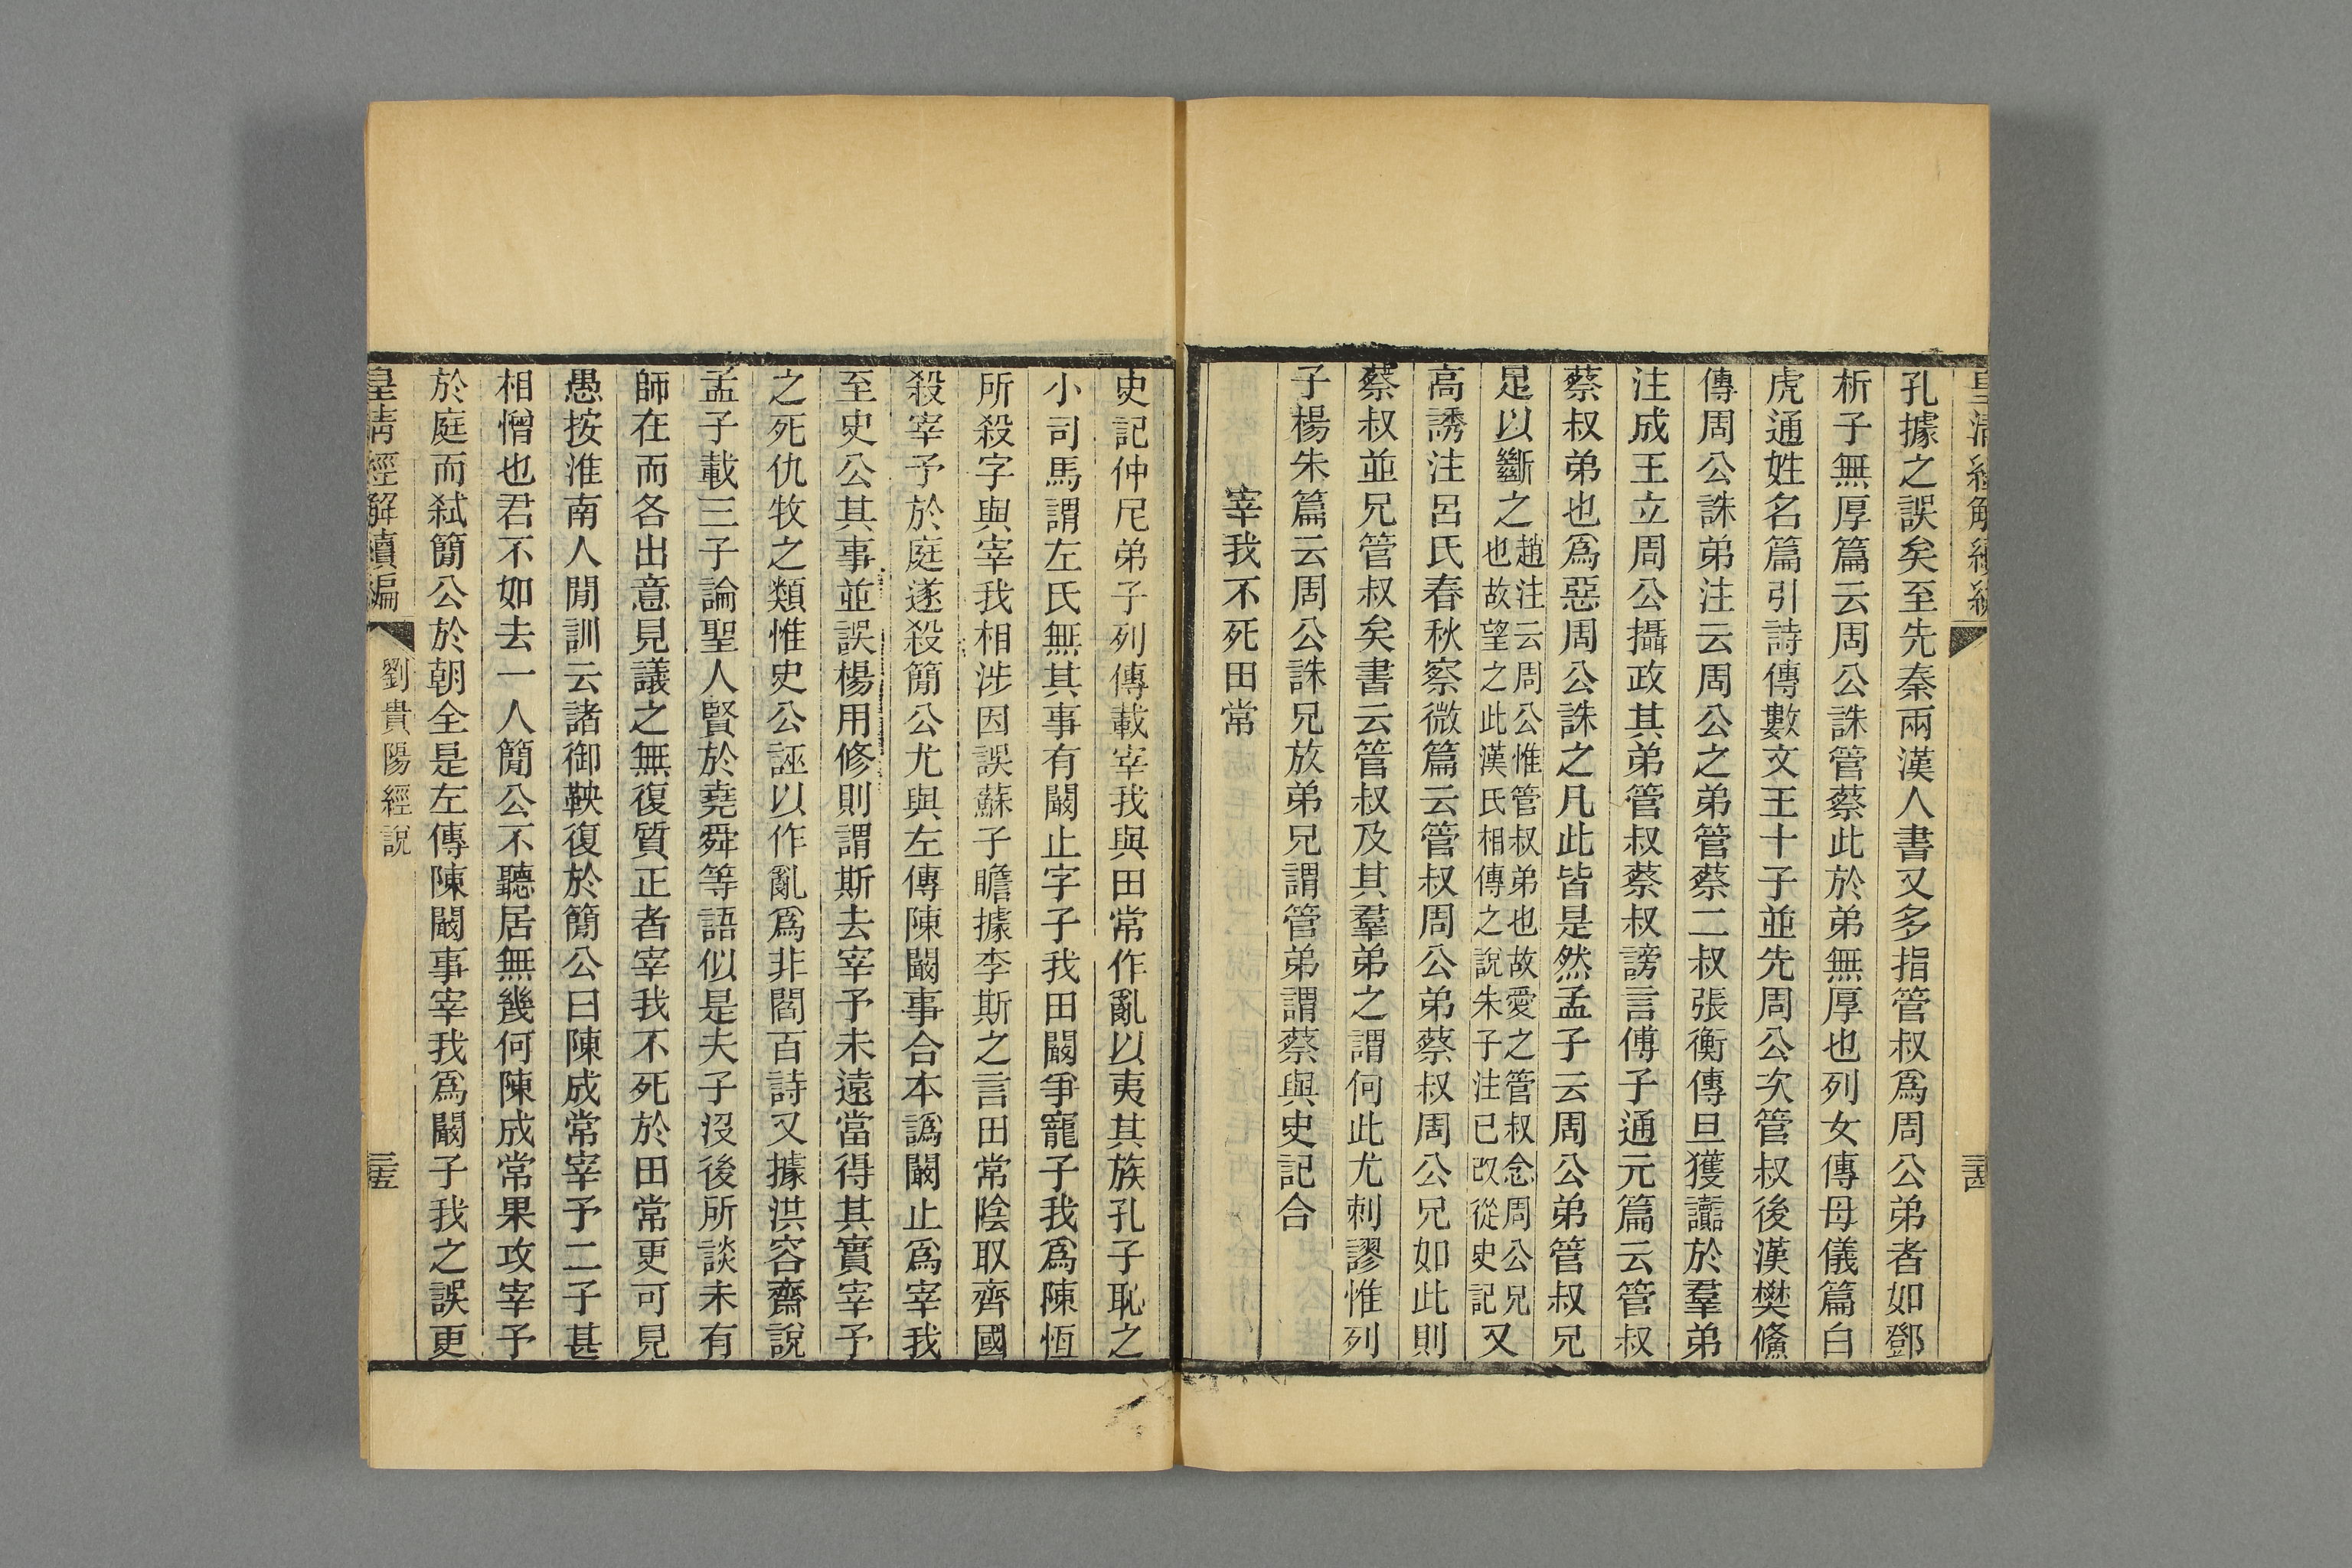 皇清經解續編
孔據之誤矣至先秦兩漢人書又多指管叔爲周公弟者如鄧
析子無厚篇云周公誅管蔡此於弟無厚也列女傳母儀篇白
虎通姓名篇引詩傳數文王十子並先周公次管叔後漢樊鯈
傳周公誅弟注云周公之弟管蔡二叔張衡傳旦獲讟於羣弟
注成王立周公攝政其弟管叔蔡叔謗言傅子通元篇云管叔
蔡叔弟也爲惡周公誅之凡此皆是然孟子云周公弟管叔兄
是以斷之趙注云周公惟管叔弟也故愛之管叔念周公兄也故望之此漢氏相傳之說朱子注已改從史記又
高誘注呂氏春秋察微篇云管叔周公弟蔡叔周公兄如此則
蔡叔並兄管叔矣書云管叔及其羣弟之謂何此尤刺謬惟列
子楊朱篇云周公誅兄放弟兄謂管弟謂蔡與史記合
宰我不死田常
史記仲尼弟子列傳載宰我與田常作亂以夷其族孔子恥之
小司馬謂左氏無其事有闞止字子我田闞爭寵子我爲陳恆
所殺字與宰我相涉因誤蘇子瞻據李斯之言田常陰取齊國
殺宰予於庭遂殺簡公尤與左傳陳闞事合本譌闞止爲宰我
至史公其事並誤楊用修則謂斯去宰予未遠當得其實宰予
之死仇牧之類惟史公誣以作亂爲非閻百詩又據洪容齋說
孟子載三子論聖人賢於堯舜等語似是夫子沒後所談未有
師在而各出意見議之無復質正者宰我不死於田常更可見
愚按淮南人閒訓云諸御鞅復於簡公曰陳成常宰予二子甚
相憎也君不如去一人簡公不聽居無幾何陳成常果攻宰予
於庭而弒簡公於朝全是左傳陳闞事宰我爲闞子我之誤更
皇清經解續編
劉貴陽經說